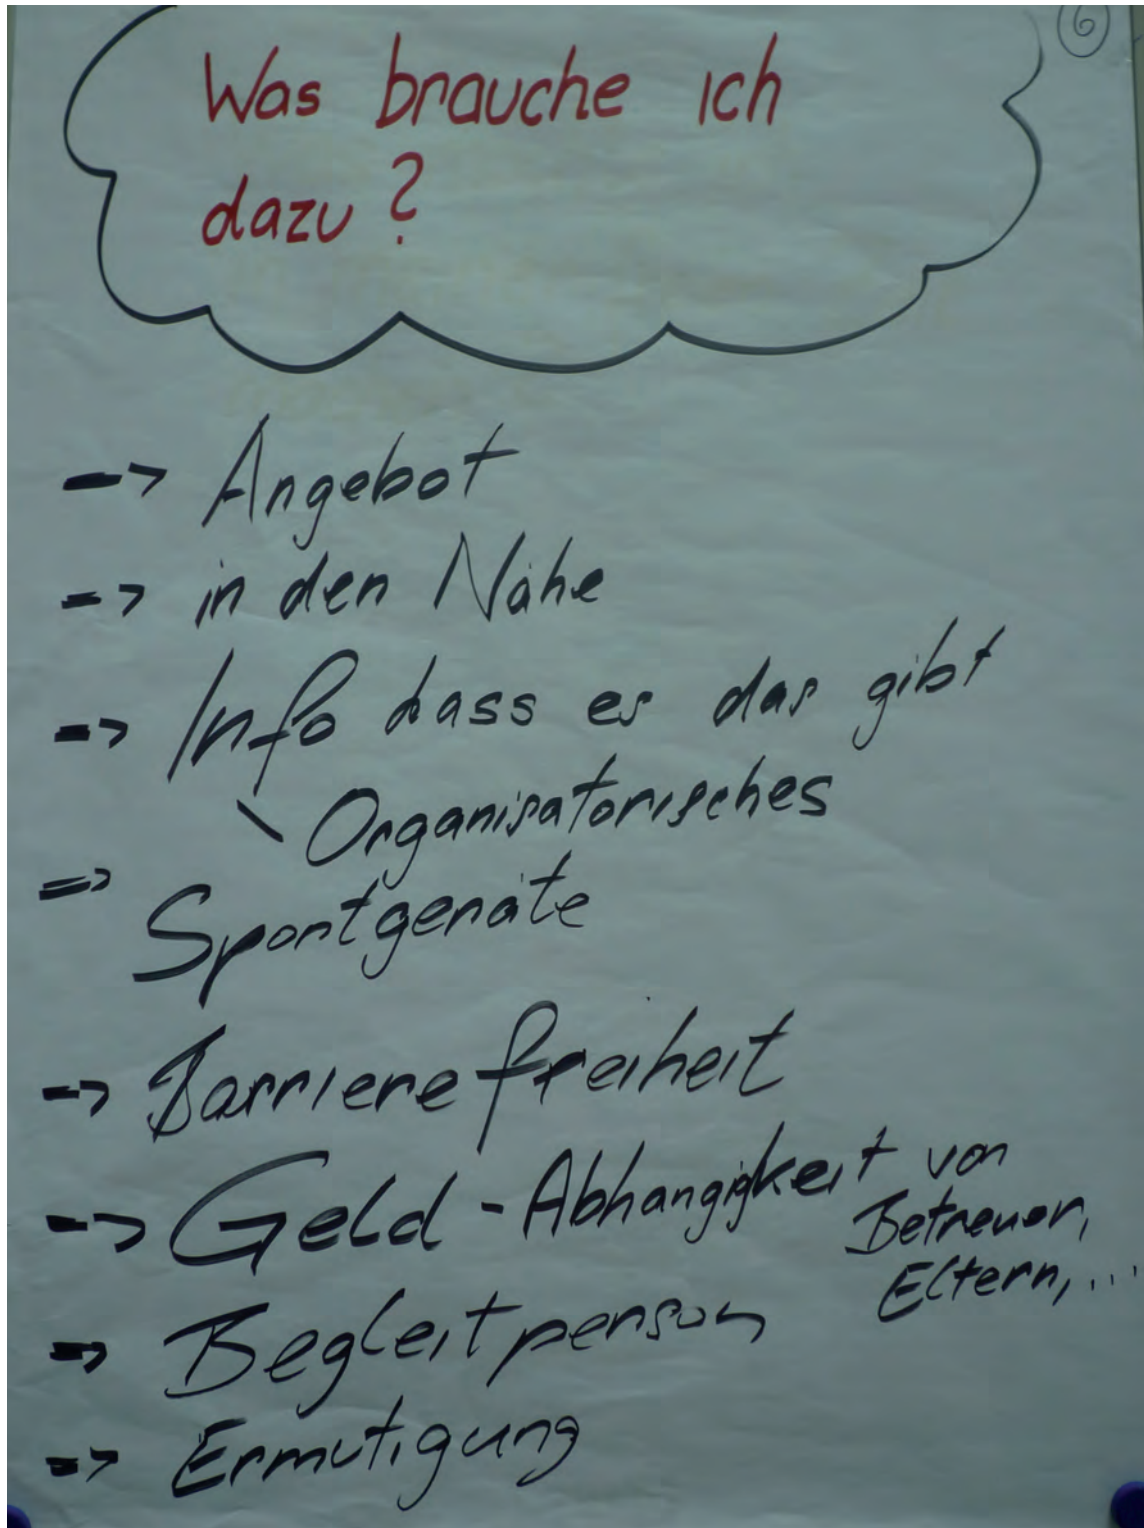 6
Was brauche ich
dazu?
-> Angebot
-> in den Nähe
-> Info dass es das gibt
\ Organisatorisches
=> Sportgeräte
-> Barrierefreiheit
-> Geld - Abhängigkeit von
Betreuer,
Eltern, ...
=> Begleitperson
-> Ermutigung